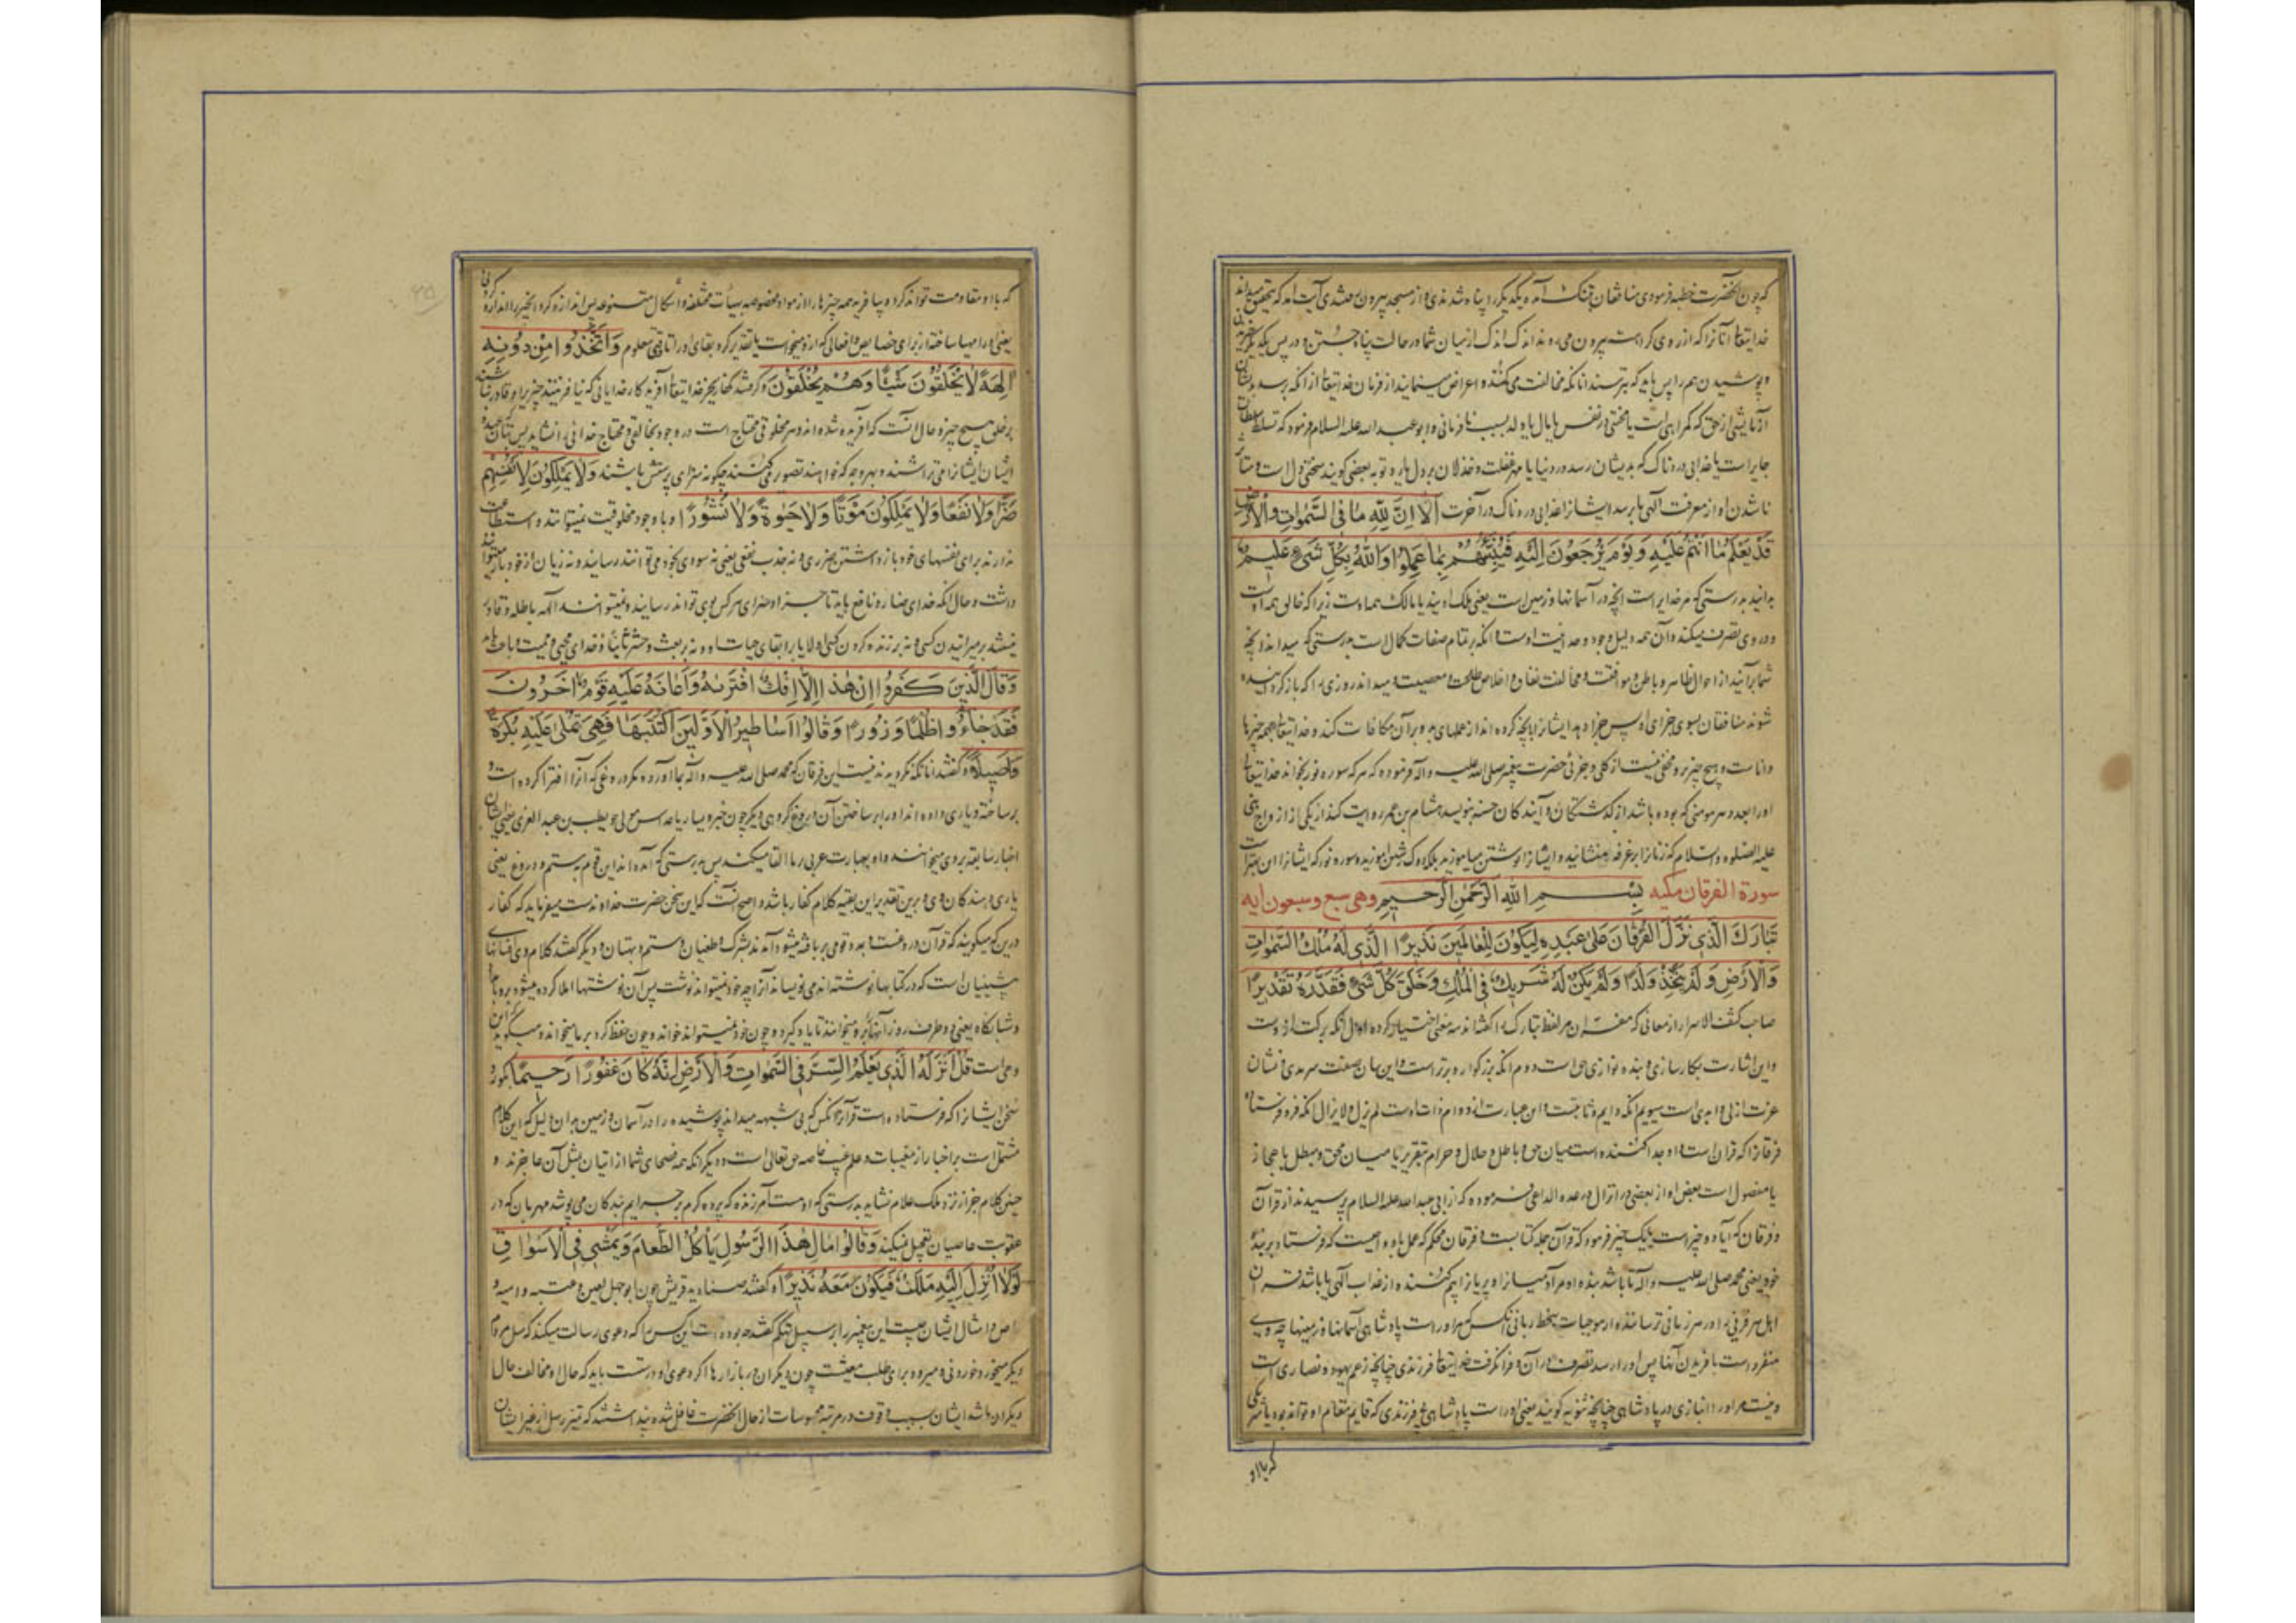 که چون آنحضرت خطبه فرمودی منافقان بتنک آمده یکدیگر را پناه شدندی و از مسجد بیرون
خدایتعالی آنانرا که از روی کراهت بیرون میروند اندک اندک از میان شما در حالت پناه جستن و در پس یکدیگر
و پوشیدن هم را پس باید که بترسند آنانکه مخالفت می کنند و اعراض مینمایند از فرمان خدایتعالی از آنکه برسد بدیشان
آزمایشی از حق که گمراهی است یا محنتی در نفس یا مال یا ولد بسبب نافرمانی و ابو عبد الله علیه السلام فرموده که تسلط سلطان
جابر است یا عذابی دردناک که بدیشان رسد در دنیا یا مهر غفلت و خذلان بر دل یا رد توبه بعضی گویند سختی دل است و متاثر
ناشدن او از معرفت الهی یا برسد ایشانرا عذابی دردناک در آخرت أَلَا إِنَّ لِلَّهِ مَا فِي السَّمٰوَاتِ وَالْأَرْضِ
قَدْ يَعْلَمُ مَا أَنْتُمْ عَلَيْهِ وَيَوْمَ يُرْجَعُونَ إِلَيْهِ فَيُنَبِّئُهُمْ بِمَا عَمِلُوا وَاللَّهُ بِكُلِّ شَيْءٍ عَلِيمٌ
بدانید بدرستی که مر خدایراست آنچه در آسمانها و زمین است یعنی ملک اویند یا مالک همه اوست زیرا که خالق همه اوست
و در وی تصرف میکند و آن همه دلیل وجود وحدانیت اوست و آنکه بر تمام صفات کمال است بدرستی که میداند آنچه
شما برآنید از احوال ظاهر و باطن و موافقت و مخالفت نفاق و اخلاص طاعت و معصیت و میداند روزی را که باز گردانیده
شوند منافقان بسوی جزای او پس جزا دهد ایشانرا بآنچه کرده اند از عملهای بد و بر آن مکافات کند و خدایتعالی بهمه چیزها
داناست و هیچ چیز برو مخفی نیست از کلی و جزئی حضرت پیغمبر صلی الله علیه و آله فرموده که هر که سوره نور بخواند خدایتعالی
او را بعدد هر مومنی که بوده باشد از گذشتگان و آیندگان حسنه بنویسد هشام بن عمر روایت کند از یکی از ازواج نبی
علیه الصلوة و السلام که زنانرا بر غرفه ها منشانید و ایشانرا نوشتن میاموزید بلکه دوک رشتن آموزید و سوره نور که ایشانرا این بهتر است
سورة الفرقان مکیه بِسْمِ اللَّهِ الرَّحْمٰنِ الرَّحِيمِ وهی سبع وسبعون ایه
تَبَارَكَ الَّذِي نَزَّلَ الْفُرْقَانَ عَلَىٰ عَبْدِهِ لِيَكُونَ لِلْعَالَمِينَ نَذِيرًا الَّذِي لَهُ مُلْكُ السَّمٰوَاتِ
وَالْأَرْضِ وَلَمْ يَتَّخِذْ وَلَدًا وَلَمْ يَكُنْ لَهُ شَرِيكٌ فِي الْمُلْكِ وَخَلَقَ كُلَّ شَيْءٍ فَقَدَّرَهُ تَقْدِيرًا
صاحب کشف الاسرار از معانی که مفسران مر لفظ تبارک را گفته اند سه معنی اختیار کرده اول آنکه برکت ازوست
و این اشارت بکارسازی و بنده نوازی حق است دوم آنکه بزرگوار و برتر است و این بیان صفت سرمدی و نشان
عزت ازلی و ابدی است سیوم آنکه دایم و ثابتست و این عبارت از دوام ذات اوست لم یزل و لا یزال آنکه فرو فرستاد
فرقانرا که قرآن است و او جدا کننده است میان حق و باطل و حلال و حرام بتقریر یا میان محق و مبطل باعجاز
یا مفصول است بعض او از بعضی در انزال و در عدة الداعی فرموده که از ابی عبد الله علیه السلام پرسیدند از قرآن
و فرقان که آیا دو چیز است یا یک چیز فرمود که قرآن جمله کتابست و فرقان محکم که عمل باو واجبست که فرستاد بر بنده
خود یعنی محمد صلی الله علیه و آله تا باشد بنده او مر آدمیان را و پریان را بیم کننده از عذاب الهی یا باشد قرآن
اهل هر قرنی را در هر زمانی ترساننده از موجبات سخط ربانی آنکس که مر اوراست پادشاهی آسمانها و زمینها چه وی
منفرد است بآفریدن آنها پس او را رسد تصرف در آن و فرا نگرفت خدایتعالی فرزندی چنانچه زعم یهود و نصاری است
و نیست مر او را انبازی در پادشاهی چنانچه ثنویه گویند یعنی اوراست پادشاهی بی فرزندی که قایم مقام او تواند بود یا شریکی
که با او
که با او مقاومت تواند کرد و بیافرید همه چیزها را از مواد مخصوصه بهیأت مختلفه و اشکال متنوعه پس اندازه کرد آنچیز را اندازه کردنی
یعنی او را مهیا ساخته از برای خصایص و افعالی که ازو میخواست یا تقدیر کرد بقای او را تا وقتی معلوم وَاتَّخَذُوا مِنْ دُونِهِ
آلِهَةً لَا يَخْلُقُونَ شَيْئًا وَهُمْ يُخْلَقُونَ و گرفتند کفار بجز خدایتعالی آفریدگار خدایانی که نیافرینند چیزی را و قادر نباشند
بر خلق هیچ چیز و حال آنست که آفریده شده اند و هر مخلوقی محتاج است در وجود بخالق و محتاج خدائی را نشاید پس بتان
ایشان ایشانرا می تراشند و بهر وجه که خواهند تصور می کنند چگونه سزای پرستش باشند وَلَا يَمْلِكُونَ لِأَنْفُسِهِمْ
ضَرًّا وَلَا نَفْعًا وَلَا يَمْلِكُونَ مَوْتًا وَلَا حَيٰوةً وَلَا نُشُورًا و با وجود مخلوقیت نمیتوانند و استطاعت
ندارند برای نفسهای خود باز داشتن ضرری و نه جذب نفعی یعنی نه سودی بخود می توانند رسانید و نه زیان از خود باز میتوانند
داشت و حال آنکه خدای ضار و نافع باید تا جزا و سزای هر کس بوی تواند رسانید و نمیتوانند الهه باطله و قادر
نیستند بر میرانیدن کسی و نه بر زنده کردن کسی اولا یا بر ابقای حیات او و نه بر بعث و حشر ثانیا و خدای محیی و ممیت و باعث باید
وَقَالَ الَّذِينَ كَفَرُوا إِنْ هٰذَا إِلَّا إِفْكٌ افْتَرٰىهُ وَأَعَانَهُ عَلَيْهِ قَوْمٌ آخَرُونَ
فَقَدْ جَاءُو ظُلْمًا وَزُورًا وَقَالُوا أَسَاطِيرُ الْأَوَّلِينَ اكْتَتَبَهَا فَهِيَ تُمْلَىٰ عَلَيْهِ بُكْرَةً
وَأَصِيلًا و گفتند آنانکه نگرویدند نیست این فرقان که محمد صلی الله علیه و آله بما آورده مگر دروغی که آنرا افترا کرده است و
بر ساخته و یاری داده اند او را بر ساختن آن دروغ گروهی دیگر چون جبر و یسار یا عداس مولی حویطب بن عبد العزی یعنی ایشان
اخبار سابقه بر وی میخوانند و او بعبارت عربی بر ما القا میکند پس بدرستی که آمده اند این قوم بستم و دروغ یعنی
یاری دهندگان وی و برین تقدیر این بقیه کلام کفار باشد و اصح آنست که این سخن حضرت خداوندست میفرماید که کفار
درین که میگویند که قرآن دروغست و بمدد قومی بربافته میشود آمدند بشرک و طغیان و ستم و بهتان و دیگر گفتند کلام وی افسانهای
پیشینیان است که در کتابها نوشته اند می نویساند آنرا چه خود نمیتواند نوشت پس آن نوشتها املا کرده میشود برو بامداد
و شبانگاه یعنی در دو طرف روز آنها برو میخوانند تا یاد گیرد و چون خود نمیتواند خواند و چون حفظ کرد بر ما میخواند و میگوید که این
وحی است قُلْ أَنْزَلَهُ الَّذِي يَعْلَمُ السِّرَّ فِي السَّمٰوَاتِ وَالْأَرْضِ إِنَّهُ كَانَ غَفُورًا رَحِيمًا بگو رد
سخن ایشانرا که فرستاده است قرآنرا آنکس که بی شبهه میداند پوشیده را در آسمان و زمین بدان دلیل که این کلام
مشتمل است بر اخبار از مغیبات و علم غیب خاصه حق تعالی است و دیگر آنکه همه فصحای شما از اتیان بمثل آن عاجزند و
چنین کلام جز از نزد ملک علام نشاید بدرستی که اوست آمرزنده که پرده کرم بر جرایم بندگان می پوشد مهربان که در
عقوبت عاصیان تعجیل نمیکند وَقَالُوا مَالِ هٰذَا الرَّسُولِ يَأْكُلُ الطَّعَامَ وَيَمْشِي فِي الْأَسْوَاقِ
لَوْلَا أُنْزِلَ إِلَيْهِ مَلَكٌ فَيَكُونَ مَعَهُ نَذِيرًا و گفتند صنادید قریش چون ابو جهل لعین و عتبه و امیه و
عاص و امثال ایشان چیست این پیغمبر را بر سبیل تهکم گفتند چه بوده است این کس را که دعوی رسالت میکند که مثل مردم
دیگر میخورد خوردنی و میرود برای طلب معیشت چون دیگران در بازارها اگر دعوی او درستست باید که حال او مخالف حال
دیگران باشد ایشان بسبب وقوف در مرتبه محسوسات از حال آنحضرت غافل شده بودند ندانستند که تمیز رسل از غیر ایشان